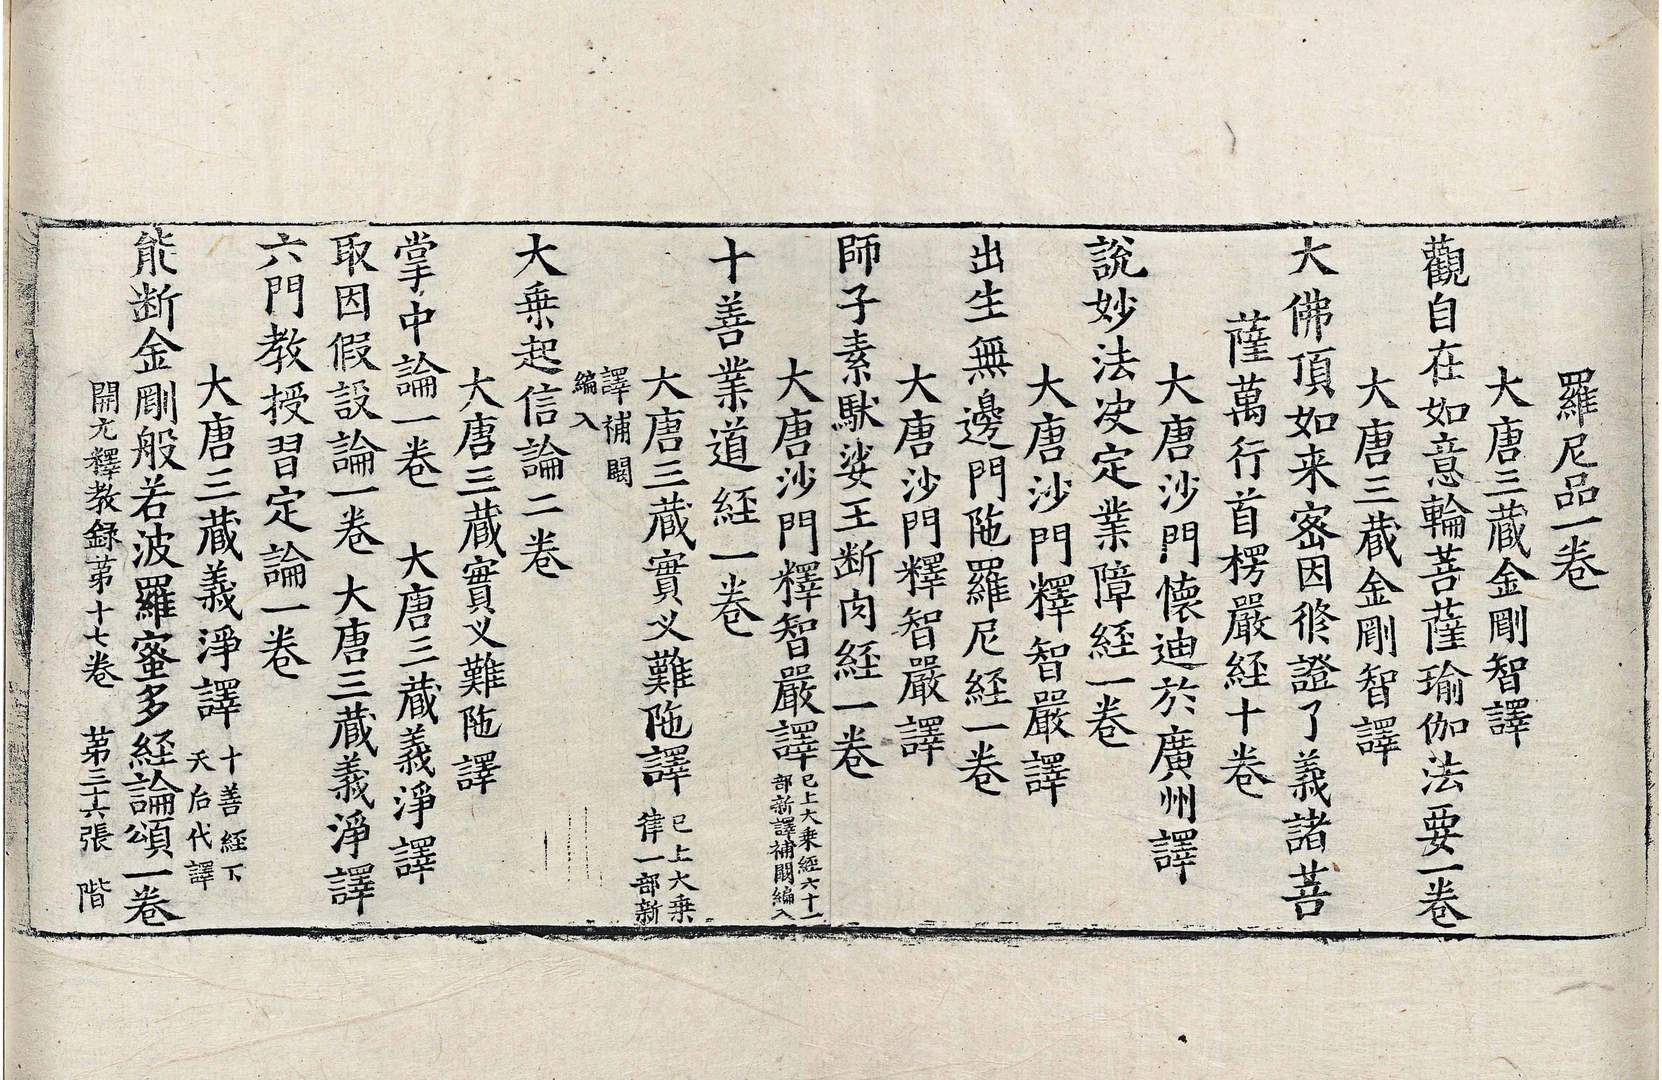 羅尼品一卷
大唐三藏金剛智譯
觀自在如意輪菩薩瑜伽法要一卷
大唐三藏金剛智譯
大佛頂如来宻因修證了義諸菩
薩萬行首楞嚴経十卷
大唐沙門懐迪於廣州譯
說妙法决定業障経一卷
大唐沙門釋智嚴譯
出生無邊門陁羅尼経一卷
大唐沙門釋智嚴譯
師子素馱娑王断肉経一卷
大唐沙門釋智嚴譯 已上大乗経六十一
部新譯補闕編入
十善業道経一卷
大唐三藏實叉難陁譯 已上大乗
律一部新
譯補闕
編入
大乗起信論二卷
大唐三藏實叉難陁譯
掌中論一卷 大唐三藏義淨譯
取因假設論一卷 大唐三藏義淨譯
六門教授習定論一卷
大唐三藏義淨譯 十善経下
天后代譯
能断金剛般若波羅蜜多経論頌一卷
開元釋教録苐十七卷 苐三十六張 階